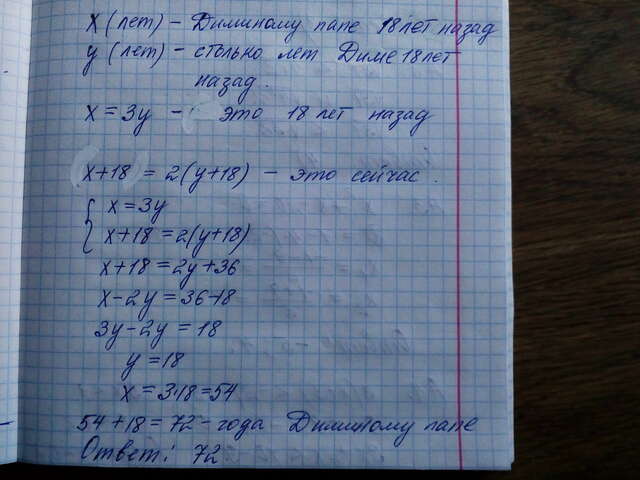 x (лет) – Диминому папе 18 лет назад
y (лет) – столько лет Диме 18 лет
назад.
x = 3y – это 18 лет назад
x+18 = 2(y+18) – это сейчас.
x = 3y
x+18 = 2(y+18)
x+18 = 2y+36
x-2y = 36-18
3y-2y = 18
y = 18
x = 3·18 = 54
54+18 = 72 – года Диминому папе
Ответ: 72